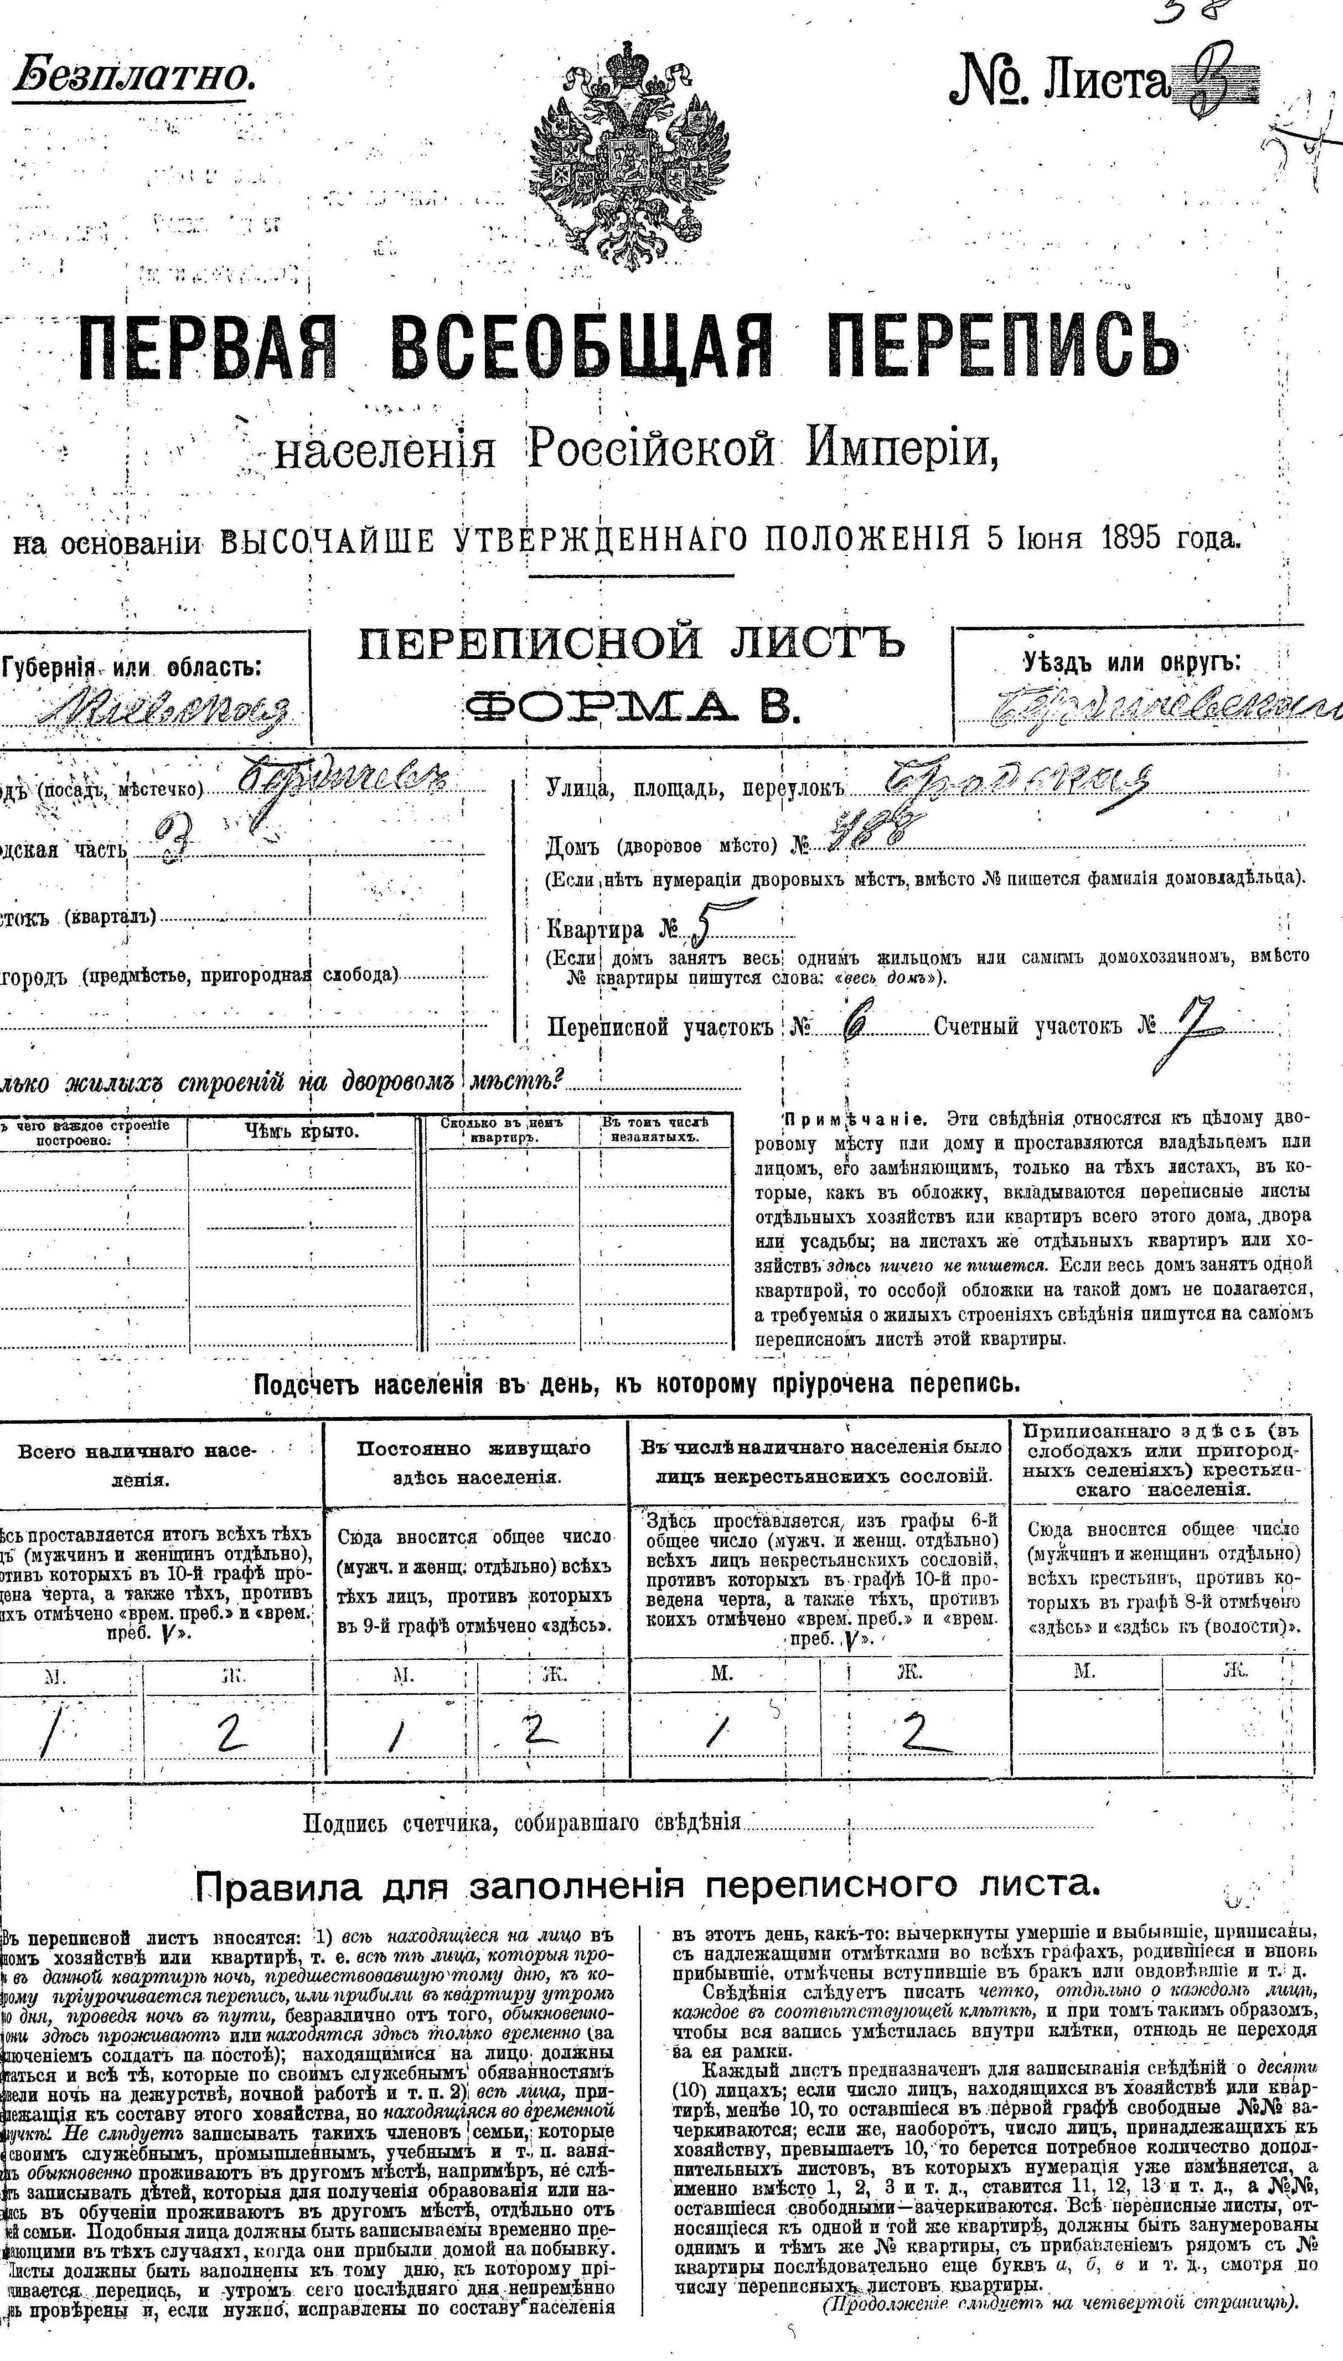 58
Безплатно.
№. Листа В
ПЕРВАЯ ВСЕОБЩАЯ ПЕРЕПИСЬ
населенія Россійской Имперіи,
на основаніи ВЫСОЧАЙШЕ УТВЕРЖДЕННАГО ПОЛОЖЕНІЯ 5 Іюня 1895 года.
ПЕРЕПИСНОЙ ЛИСТЪ
ФОРМА В.
Губернія или область:
Кіевская
Уѣздъ или округъ:
Бердичевскаго
одъ (посадъ, мѣстечко) Бердичевъ
одская часть 3
стокъ (кварталъ)
городъ (предмѣстье, пригородная слобода)
Улица, площадь, переулокъ Бродская
Домъ (дворовое мѣсто) № 488
(Если нѣтъ нумераціи дворовыхъ мѣстъ, вмѣсто № пишется фамилія домовладѣльца).
Квартира № 5
(Если домъ занятъ весь однимъ жильцомъ или самимъ домохозяиномъ, вмѣсто
№ квартиры пишутся слова: «весь домъ»).
Переписной участокъ № 6 Счетный участокъ № 7
лько жилыхъ строеній на дворовомъ мѣстѣ?
ъ чего каждое строеніе
построено.
Чѣмъ крыто.
Сколько въ немъ
квартиръ.
Въ томъ числѣ
незанятыхъ.
Примѣчаніе. Эти свѣдѣнія относятся къ цѣлому дво-
ровому мѣсту или дому и проставляются владѣльцемъ или
лицомъ, его замѣняющимъ, только на тѣхъ листахъ, въ ко-
торые, какъ въ обложку, вкладываются переписные листы
отдѣльныхъ хозяйствъ или квартиръ всего этого дома, двора
или усадьбы; на листахъ же отдѣльныхъ квартиръ или хо-
зяйствъ здѣсь ничего не пишется. Если весь домъ занятъ одной
квартирой, то особой обложки на такой домъ не полагается,
а требуемыя о жилыхъ строеніяхъ свѣдѣнія пишутся на самомъ
переписномъ листѣ этой квартиры.
Подсчетъ населенія въ день, къ которому пріурочена перепись.
Всего наличнаго насе-
ленія.
ѣсь проставляется итогъ всѣхъ тѣхъ
цъ (мужчинъ и женщинъ отдѣльно),
отивъ которыхъ въ 10-й графѣ про-
дена черта, а также тѣхъ, противъ
ихъ отмѣчено «врем. преб.» и «врем.
преб. V».
М. Ж.
1 2
Постоянно живущаго
здѣсь населенія.
Сюда вносится общее число
(мужч. и женщ. отдѣльно) всѣхъ
тѣхъ лицъ, противъ которыхъ
въ 9-й графѣ отмѣчено «здѣсь».
М. Ж.
1 2
Въ числѣ наличнаго населенія было
лицъ некрестьянскихъ сословій.
Здѣсь проставляется, изъ графы 6-й
общее число (мужч. и женщ. отдѣльно)
всѣхъ лицъ некрестьянскихъ сословій,
противъ которыхъ въ графѣ 10-й про-
ведена черта, а также тѣхъ, противъ
коихъ отмѣчено «врем. преб.» и «врем.
преб. V».
М. Ж.
1 2
Приписаннаго здѣсь (въ
слободахъ или пригород-
ныхъ селеніяхъ) крестьян-
скаго населенія.
Сюда вносится общее число
(мужчинъ и женщинъ отдѣльно)
всѣхъ крестьянъ, противъ ко-
торыхъ въ графѣ 8-й отмѣчено
«здѣсь» и «здѣсь къ (волости)».
М. Ж.
Подпись счетчика, собиравшаго свѣдѣнія
Правила для заполненія переписного листа.
Въ переписной листъ вносятся: 1) всѣ находящіеся на лицо въ
номъ хозяйствѣ или квартирѣ, т. е. всѣ тѣ лица, которыя про-
и въ данной квартирѣ ночь, предшествовавшую тому дню, къ ко-
рому пріурочивается перепись, или прибыли въ квартиру утромъ
о дня, проведя ночь въ пути, безразлично от того, обыкновенно-
они здѣсь проживаютъ или находятся здѣсь только временно (за
люченіемъ солдатъ на постоѣ); находящимися на лицо должны
таться и всѣ тѣ, которые по своимъ служебнымъ обязанностямъ
вели ночь на дежурствѣ, ночной работѣ и т. п. 2) всѣ лица, при-
лежащія къ составу этого хозяйства, но находящіяся во временной
лучкѣ. Не слѣдуетъ записывать такихъ членовъ семьи, которые
своимъ служебнымъ, промышленнымъ, учебнымъ и т. п. заня-
ъ обыкновенно проживаютъ въ другомъ мѣстѣ, напримѣръ, не слѣ-
тъ записывать дѣтей, которыя для полученія образованія или на-
ясь въ обученіи проживаютъ въ другомъ мѣстѣ, отдѣльно отъ
ей семьи. Подобныя лица должны быть записываемы временно пре-
вающими въ тѣхъ случаяхъ, когда они прибыли домой на побывку.
Листы должны быть заполнены къ тому дню, къ которому прі-
чивается перепись, и утромъ сего послѣдняго дня непремѣнно
ь провѣрены и, если нужно, исправлены по составу населенія
въ этотъ день, какъ-то: вычеркнуты умершіе и выбывшіе, приписаны,
съ надлежащими отмѣтками во всѣхъ графахъ, родившіеся и вновь
прибывшіе, отмѣчены вступившіе въ бракъ или овдовѣвшіе и т. д.
Свѣдѣнія слѣдуетъ писать четко, отдѣльно о каждомъ лицѣ,
каждое въ соотвѣтствующей клѣткѣ, и при томъ такимъ образомъ,
чтобы вся запись умѣстилась внутри клѣтки, отнюдь не переходя
за ея рамки.
Каждый листъ предназначенъ для записыванія свѣдѣній о десяти
(10) лицахъ; если число лицъ, находящихся въ хозяйствѣ или квар-
тирѣ, менѣе 10, то оставшіеся въ первой графѣ свободные №№ за-
черкиваются; если же, наоборотъ, число лицъ, принадлежащихъ къ
хозяйству, превышаетъ 10, то берется потребное количество допол-
нительныхъ листовъ, въ которыхъ нумерація уже измѣняется, а
именно вмѣсто 1, 2, 3 и т. д., ставится 11, 12, 13 и т. д., а №№,
оставшіеся свободными—зачеркиваются. Всѣ переписные листы, от-
носящіеся къ одной и той же квартирѣ, должны быть занумерованы
однимъ и тѣмъ же № квартиры, съ прибавленіемъ рядомъ съ №
квартиры послѣдовательно еще буквъ а, б, в и т. д., смотря по
числу переписныхъ листовъ квартиры.
(Продолженіе слѣдуетъ на четвертой страницѣ).